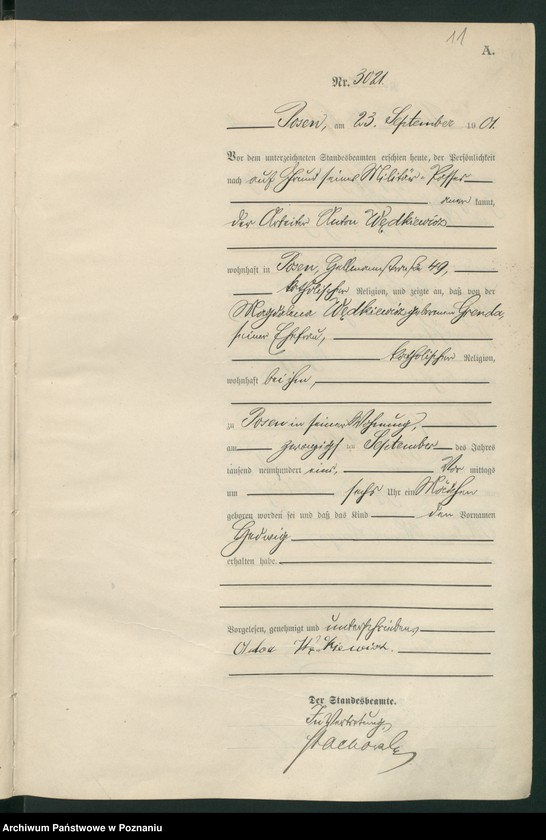 11
A.
Nr. 3021.
Posen, am 23. September 1901.
Vor dem unterzeichneten Standesbeamten erschien heute, der Persönlichkeit
nach auf Grund seines Militär-Passes
kannt,
der Arbeiter Anton Wędkiewicz
wohnhaft in Posen, 49,
katholischer Religion, und zeigte an, daß von der
Magdalena Wędkiewicz geborenen Grenda,
seiner Ehefrau,
katholischer Religion,
wohnhaft bei ihm,
zu Posen in seiner Wohnung,
am zwanzigsten September des Jahres
tausend neunhundert eins, Vor mittags
um sechs Uhr ein Mädchen
geboren worden sei und daß das Kind den Vornamen
Hedwig
erhalten habe.
Vorgelesen, genehmigt und unterschrieben
Der Standesbeamte.
In Vertretung,
Archiwum Państwowe w Poznaniu